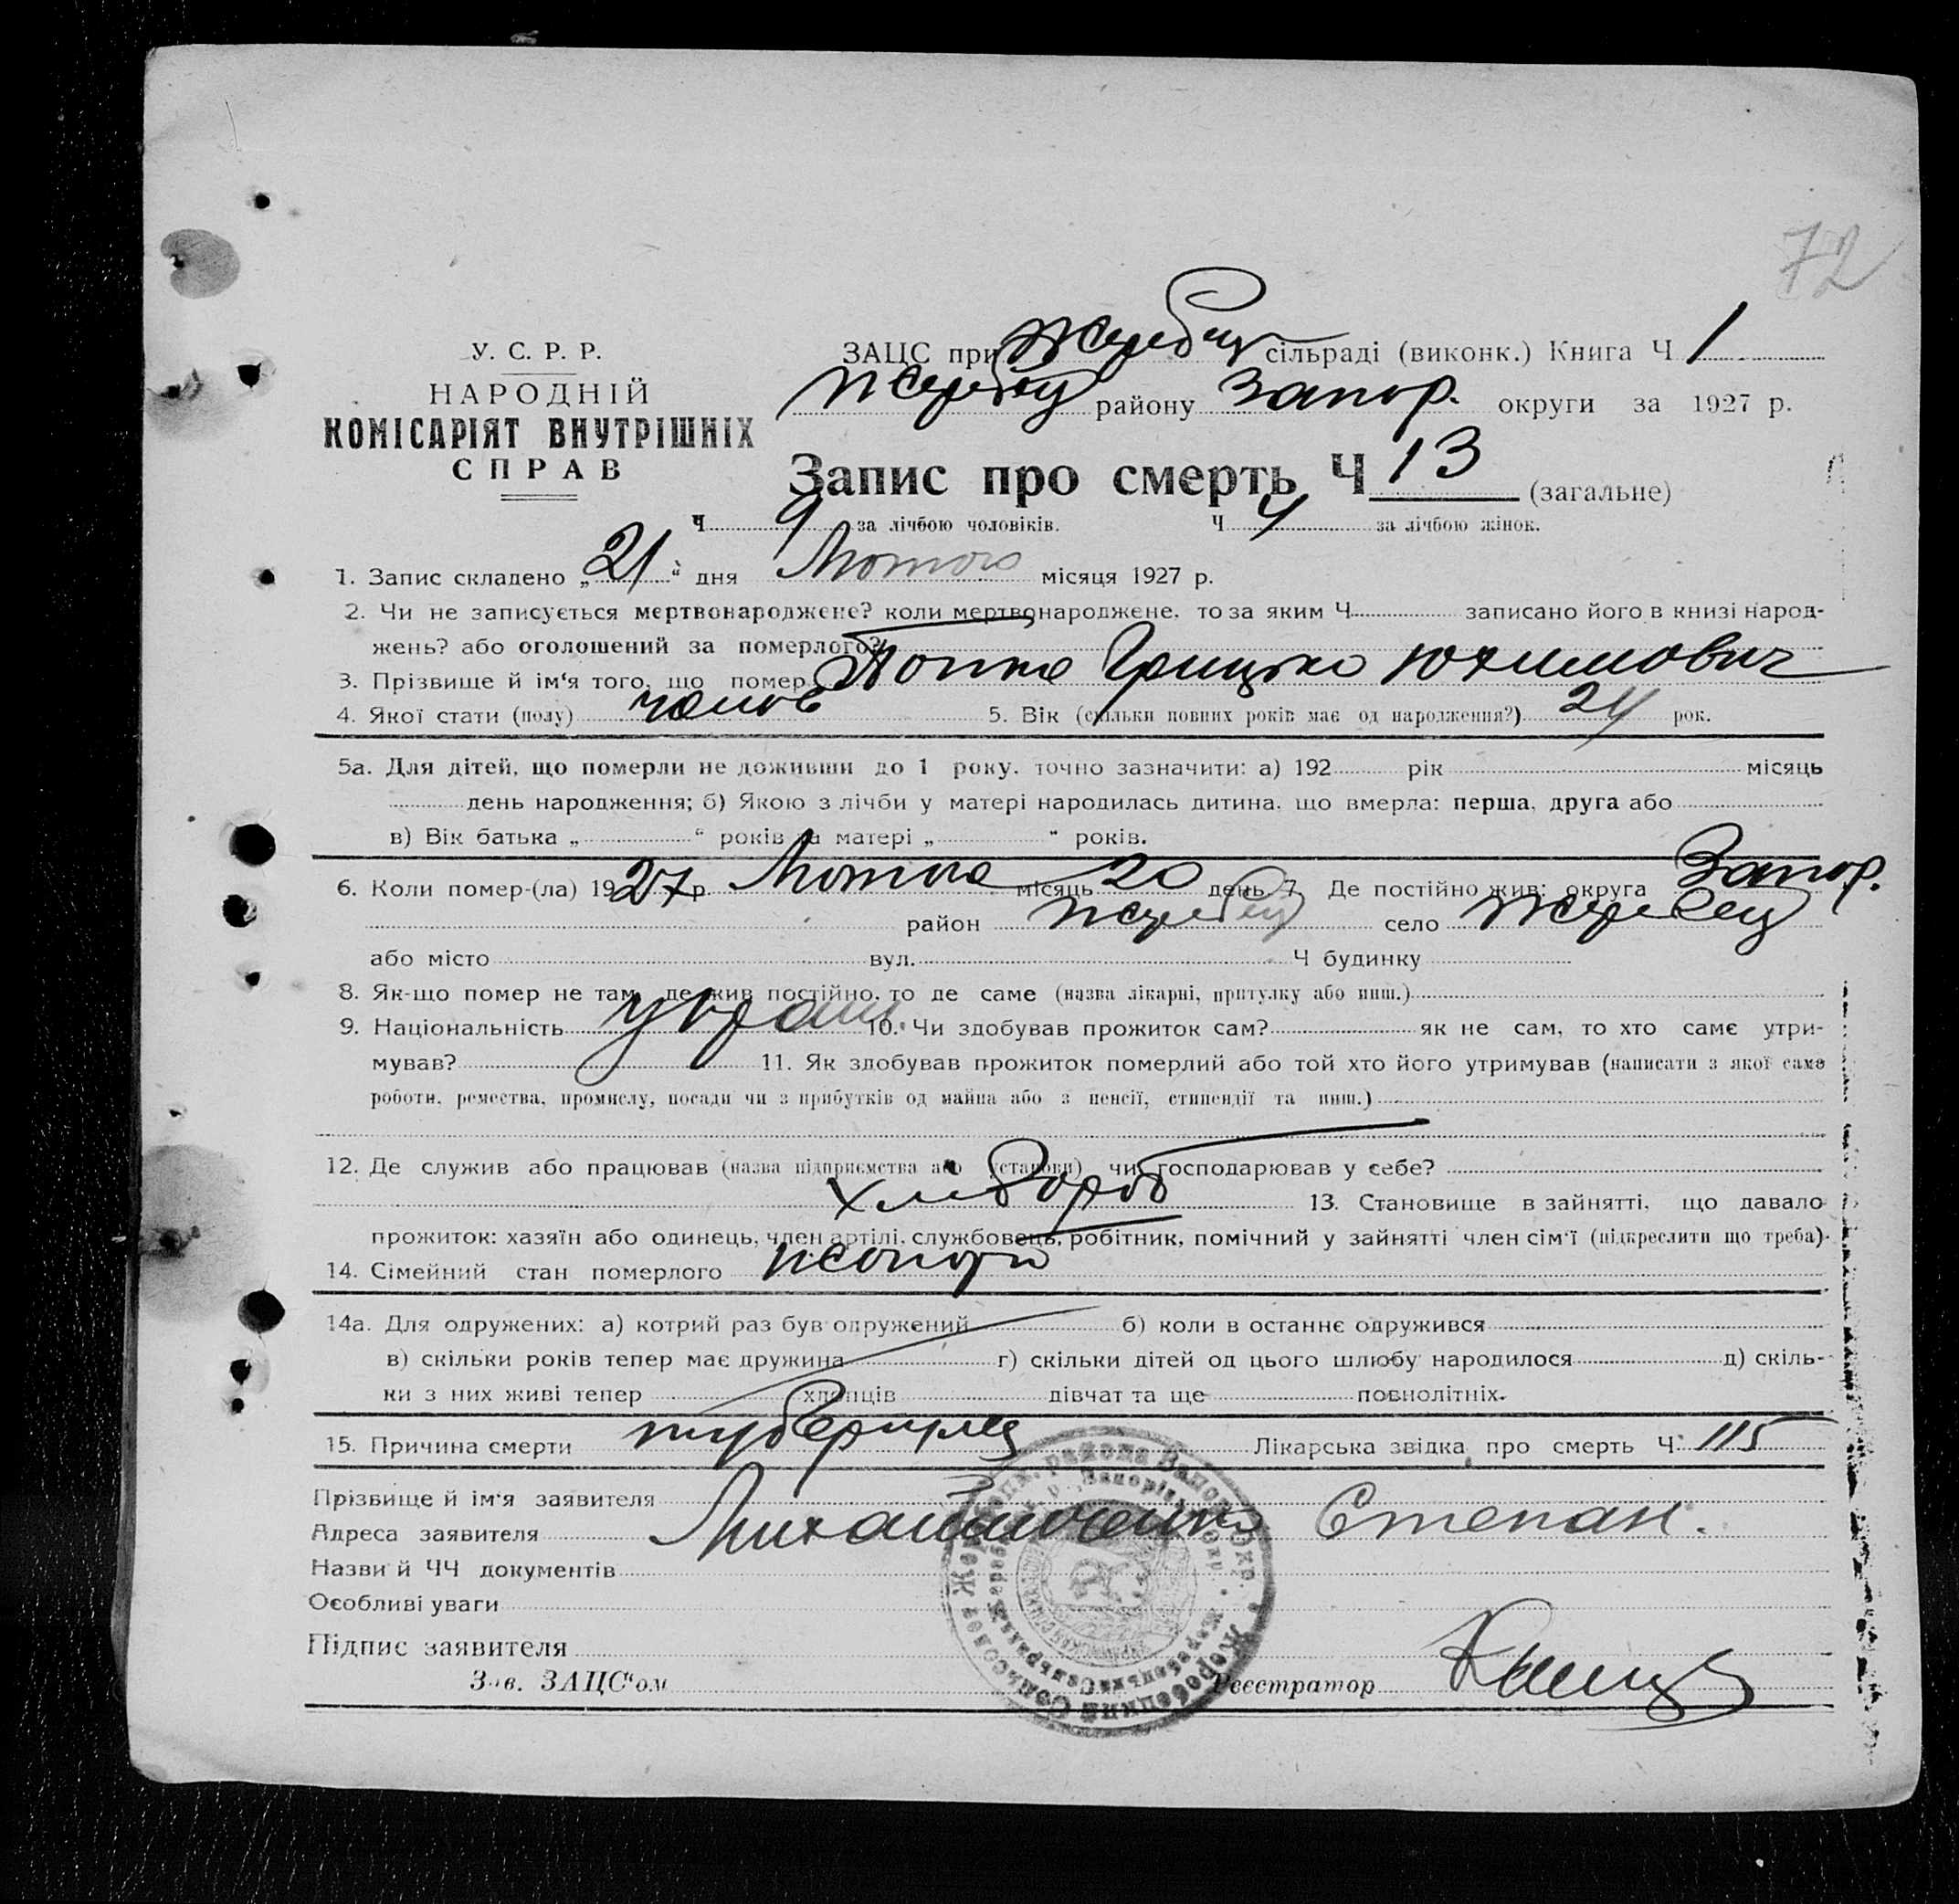 72
У. С. Р. Р.
НАРОДНІЙ
КОМІСАРІЯТ ВНУТРІШНІХ
СПРАВ
ЗАЦС при Жеребец сільраді (виконк.) Книга Ч 1
Жеребец району Запор. округи за 1927 р.
Запис про смерть Ч 13 (загальне)
Ч 9 за лічбою чоловіків. Ч 4 за лічбою жінок.
1. Запис складено „21“ дня Лютого місяця 1927 р.
2. Чи не записується мертвонароджене? коли мертвонароджене, то за яким Ч записано його в книзі народ-
жень? або оголошений за померлого?
3. Прізвище й ім'я того, що помер Попко Грицько Юхимович
4. Якої стати (полу) чолов 5. Вік (скільки повних років має од народження?) 24 рок.
5а. Для дітей, що померли не доживши до 1 року, точно зазначити: а) 192 рік місяць
день народження; б) Якою з лічби у матері народилась дитина, що вмерла: перша, друга або
в) Вік батька „ “ років та матері „ “ років.
6. Коли помер-(ла) 1927 р. Лютого місяць 20 день 7. Де постійно жив: округа Запор.
район Жеребец село Жеребец
або місто вул. Ч будинку
8. Як-що помер не там, де жив постійно, то де саме (назва лікарні, притулку або инш.)
9. Національність украін. 10. Чи здобував прожиток сам? як не сам, то хто саме утри-
мував? 11. Як здобував прожиток померлий або той хто його утримував (написати з якої саме
роботи, ремества, промислу, посади чи з прибутків од майна або з пенсії, стипендії та инш.)
12. Де служив або працював (назва підприємства або установи) чи господарював у себе?
хлібороб 13. Становище в зайнятті, що давало
прожиток: хазяїн або одинець, член артілі, службовець, робітник, помічний у зайнятті член сім'ї (підкреслити що треба).
14. Сімейний стан померлого
14а. Для одружених: а) котрий раз був одружений б) коли в останнє одружився
в) скільки років тепер має дружина г) скільки дітей од цього шлюбу народилося д) скіль-
ки з них живі тепер хлопців дівчат та ще повнолітніх.
15. Причина смерти туберкулез Лікарська звідка про смерть Ч 115
Прізвище й ім'я заявителя
Адреса заявителя Михайличенко Степан.
Назви й ЧЧ документів
Особливі уваги
Підпис заявителя
Зав. ЗАЦС'ом Реєстратор